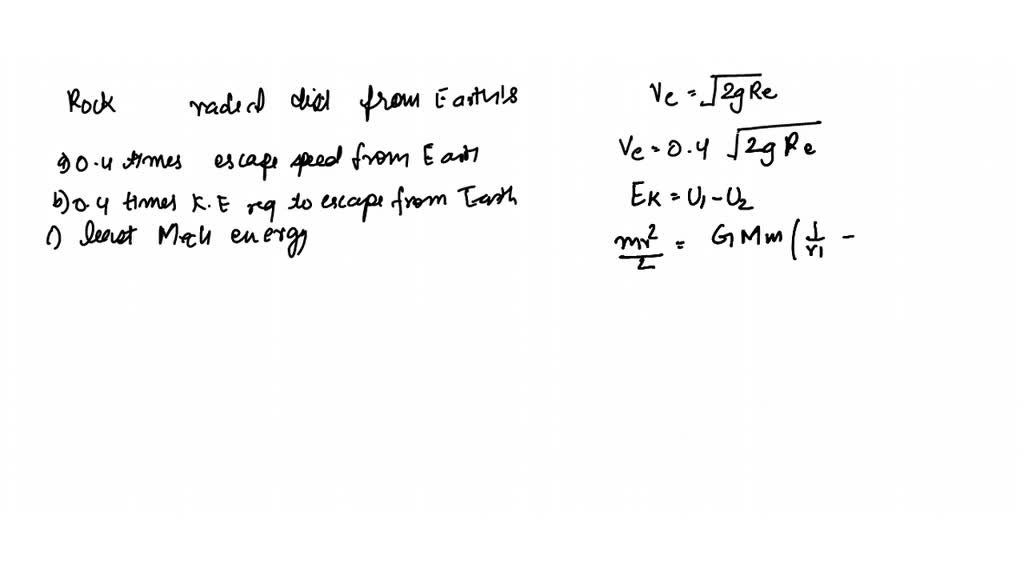 Rock radial dist from Earth's
a) 0.4 times escape speed from Earth
b) 0.4 times K.E req to escape from Earth
c) least Mech energy
Ve = √2gRe
Ve = 0.4 √2gRe
EK = U1 - U2
mv²/2 = GMm (1/r1 -